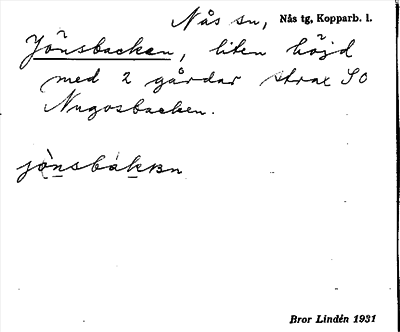 Nås sn, Nås tg, Kopparb. l.
Jönsbacken, liten höjd
med 2 gårdar strax SO
Nugosbacken.
jònsbákkɐn
Bror Lindén 1931